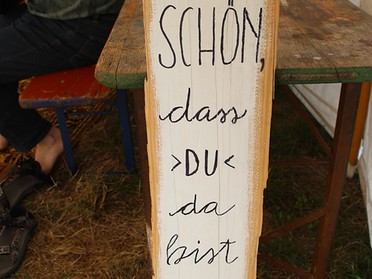 SCHÖN,
dass
>DU<
da
bist